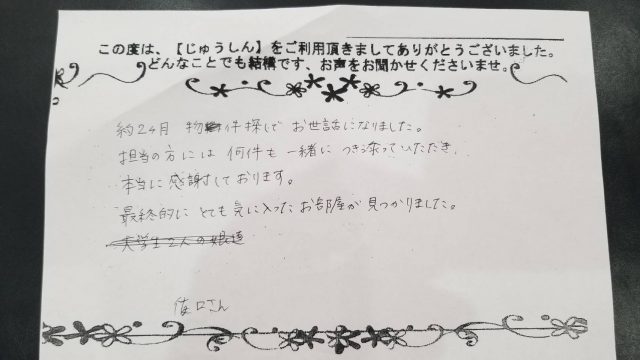 この度は、【じゅうしん】をご利用頂きましてありがとうございました。
どんなことでも結構です、お声をお聞かせくださいませ。
約2ヶ月 物件探しで お世話になりました。
担当の方には 何件も 一緒に つき添っていただき、
本当に感謝しております。
最終的に とても気に入ったお部屋が見つかりました。
大学生2人の娘達
口さん